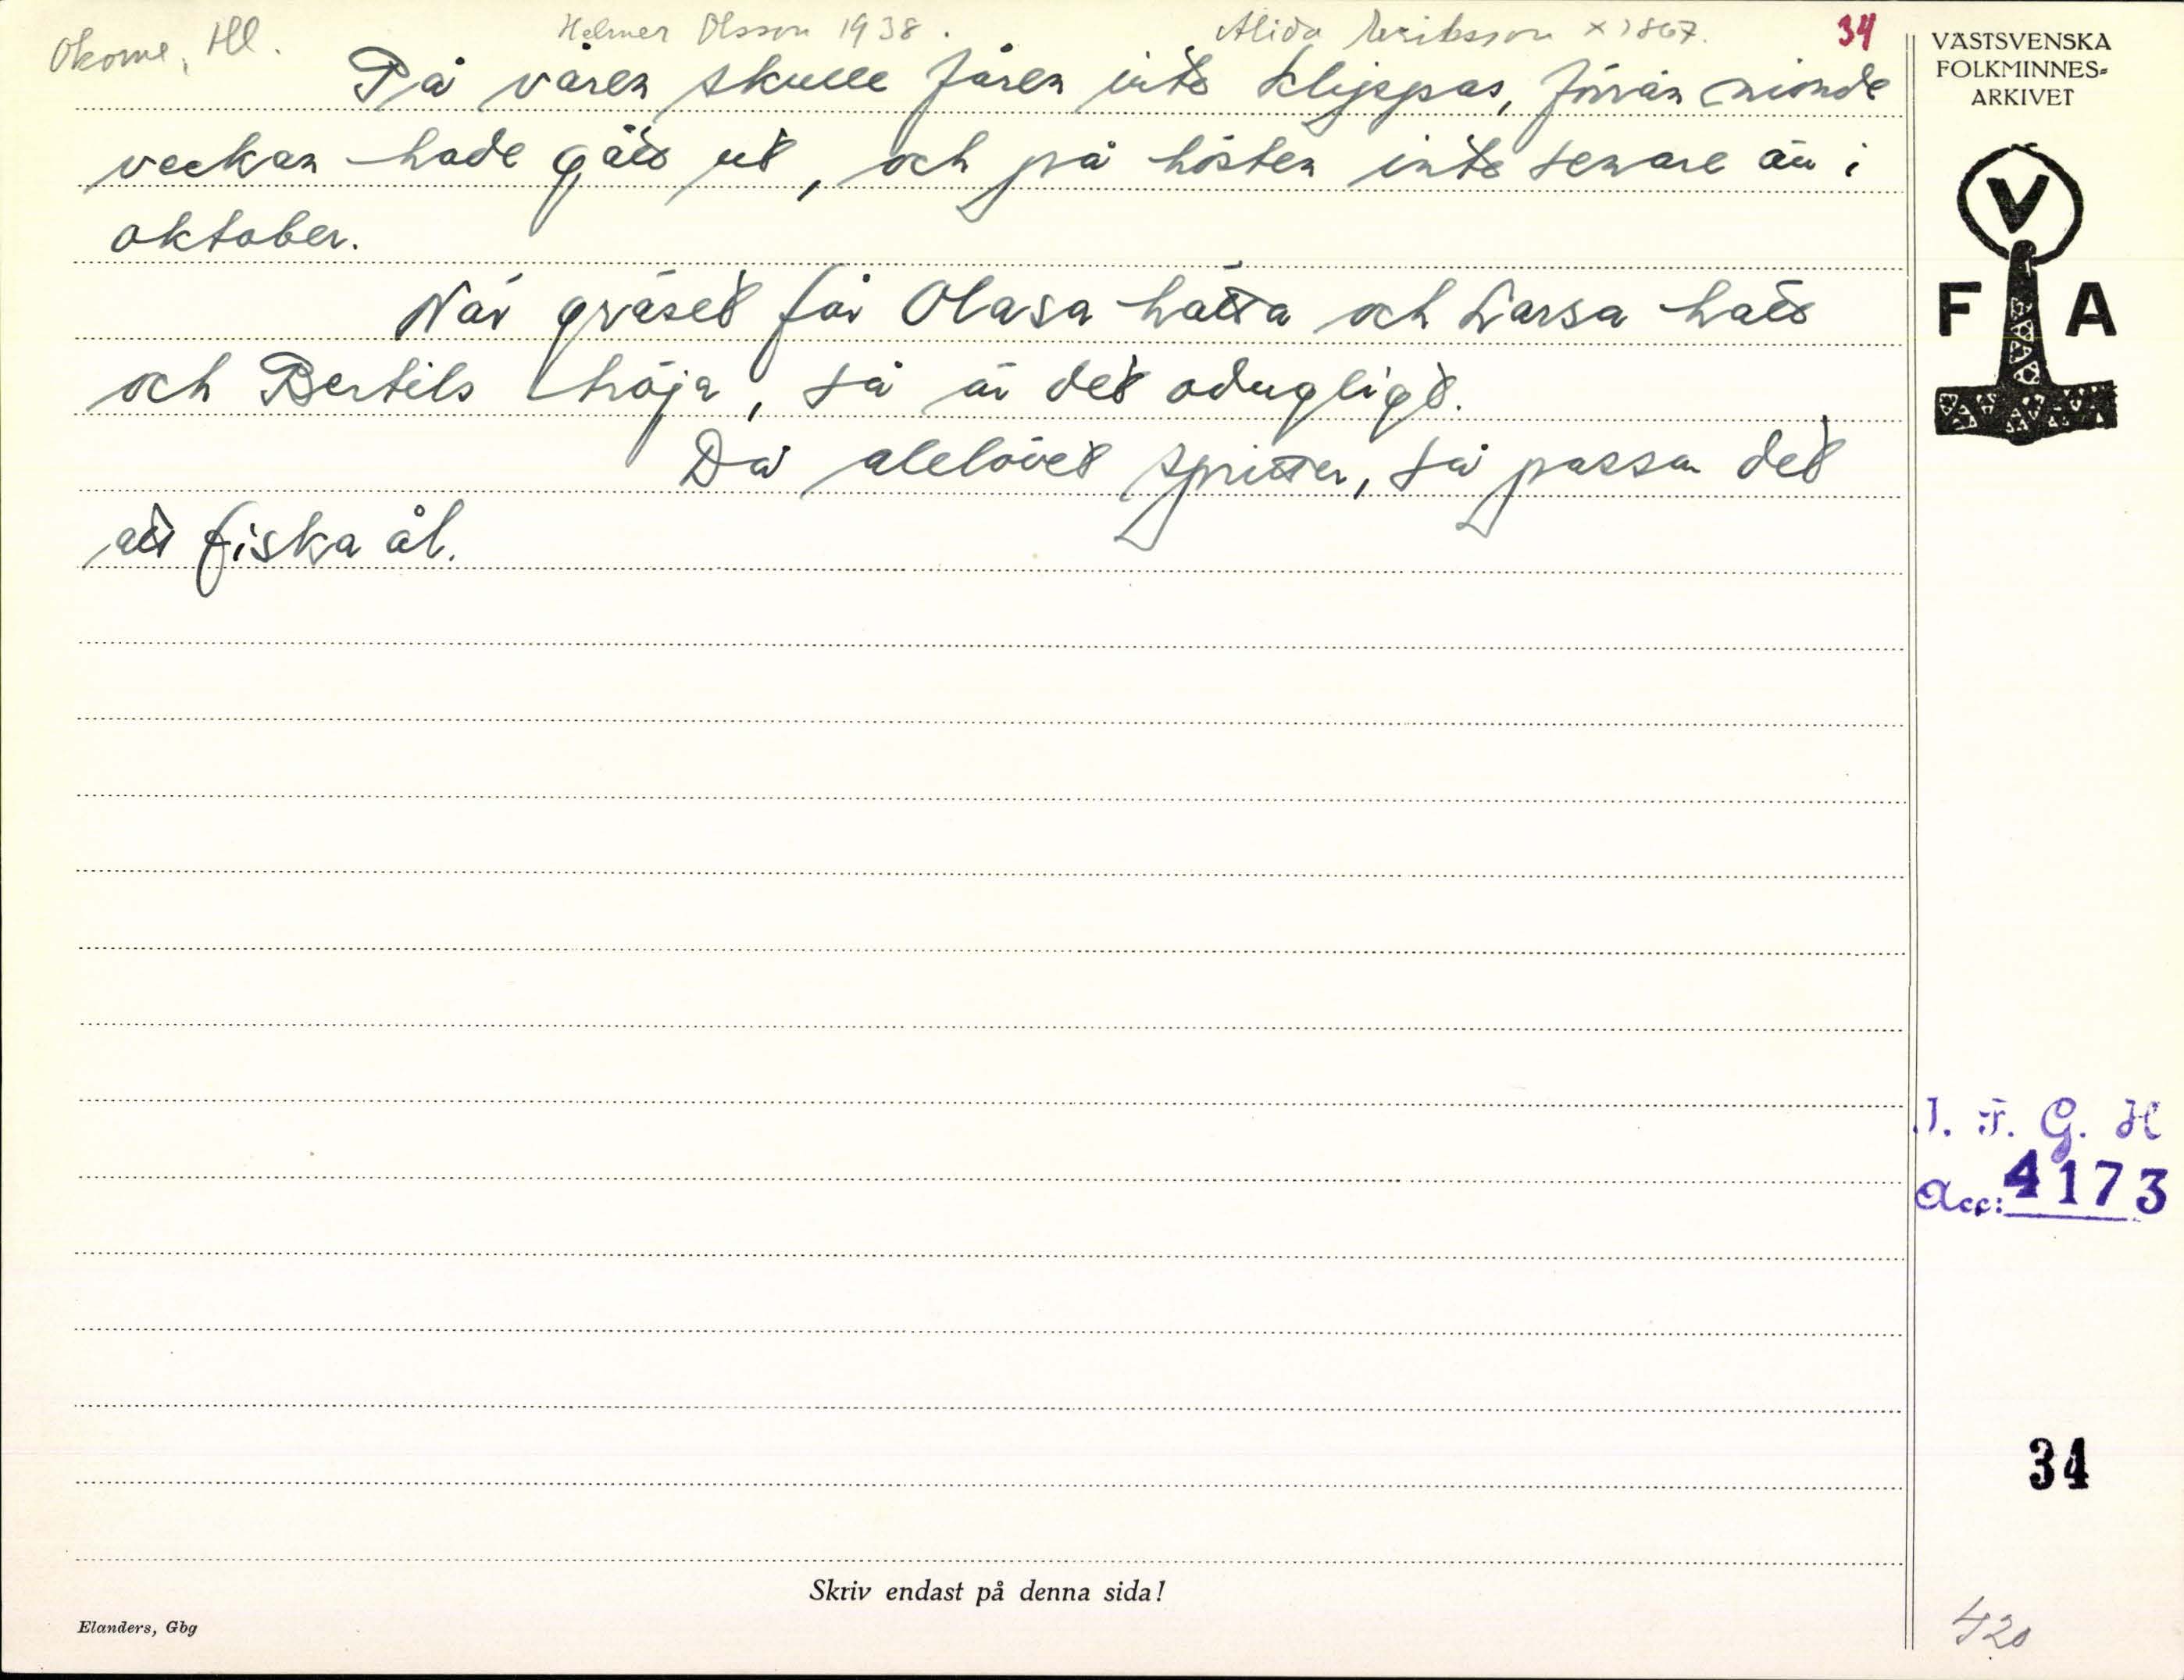 Okome, Hl. Helmer Olsson 1938. Alida Eriksson x 1867. 34
På våren skulle fåren inte klippas, förrän nionde
veckan hade gått ut, och på hösten inte senare än i
oktober.
När gräset får Olasa hätta och Larsa hatt
och Bertils tröja, så är det odugligt.
Då alelövet spritter, så passar det
att fiska ål.
VÄSTSVENSKA
FOLKMINNES=
ARKIVET
V
F A
I. F. G. H
Acc: 4173
34
Skriv endast på denna sida!
Elanders, Gbg
420